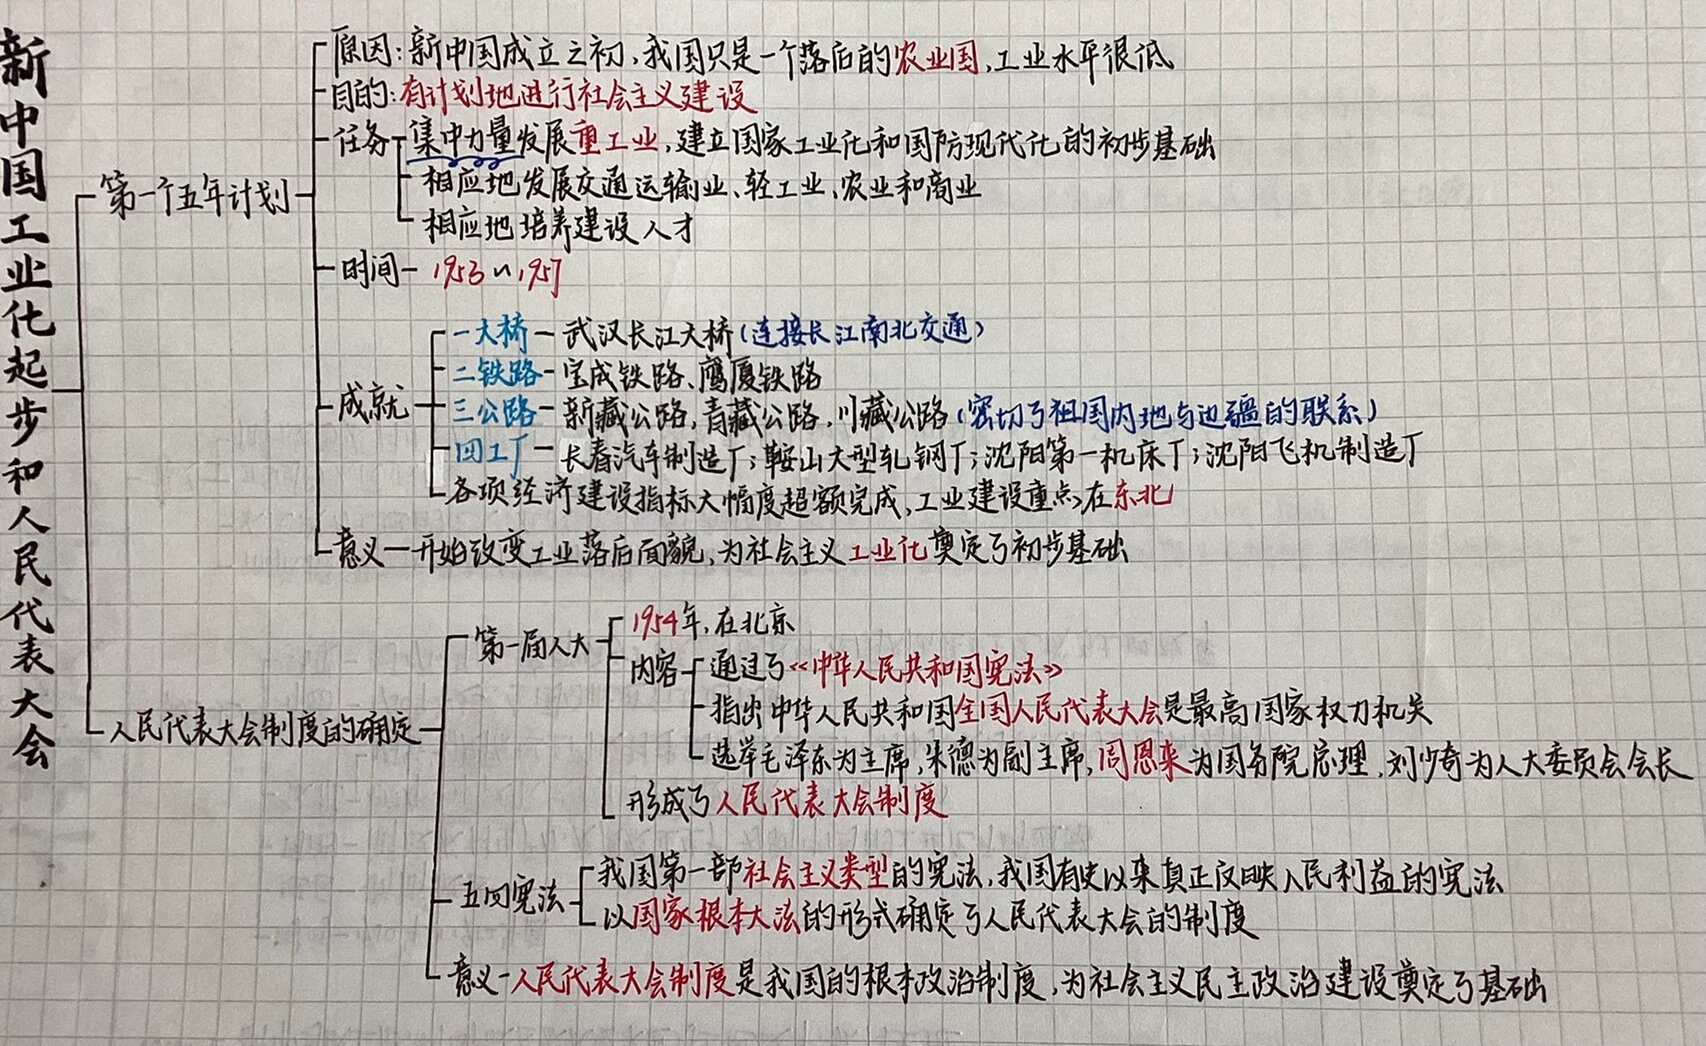 新中国工业化起步和人民代表大会
第一个五年计划
原因:新中国成立之初,我国只是一个落后的农业国,工业水平很低
目的:有计划地进行社会主义建设
任务
集中力量发展重工业,建立国家工业化和国防现代化的初步基础
相应地发展交通运输业、轻工业、农业和商业
相应地培养建设人才
时间-1953~1957
成就
一大桥-武汉长江大桥(连接长江南北交通)
二铁路-宝成铁路、鹰厦铁路
三公路-新藏公路,青藏公路,川藏公路(密切了祖国内地与边疆的联系)
四工厂-长春汽车制造厂;鞍山大型轧钢厂;沈阳第一机床厂;沈阳飞机制造厂
各项经济建设指标大幅度超额完成,工业建设重点在东北
意义-开始改变工业落后面貌,为社会主义工业化奠定了初步基础
人民代表大会制度的确定
第一届人大
1954年,在北京
内容
通过了《中华人民共和国宪法》
指出中华人民共和国全国人民代表大会是最高国家权力机关
选举毛泽东为主席,朱德为副主席,周恩来为国务院总理,刘少奇为人大委员会会长
形成了人民代表大会制度
五四宪法
我国第一部社会主义类型的宪法,我国有史以来真正反映人民利益的宪法
以国家根本大法的形式确定了人民代表大会的制度
意义-人民代表大会制度是我国的根本政治制度,为社会主义民主政治建设奠定了基础